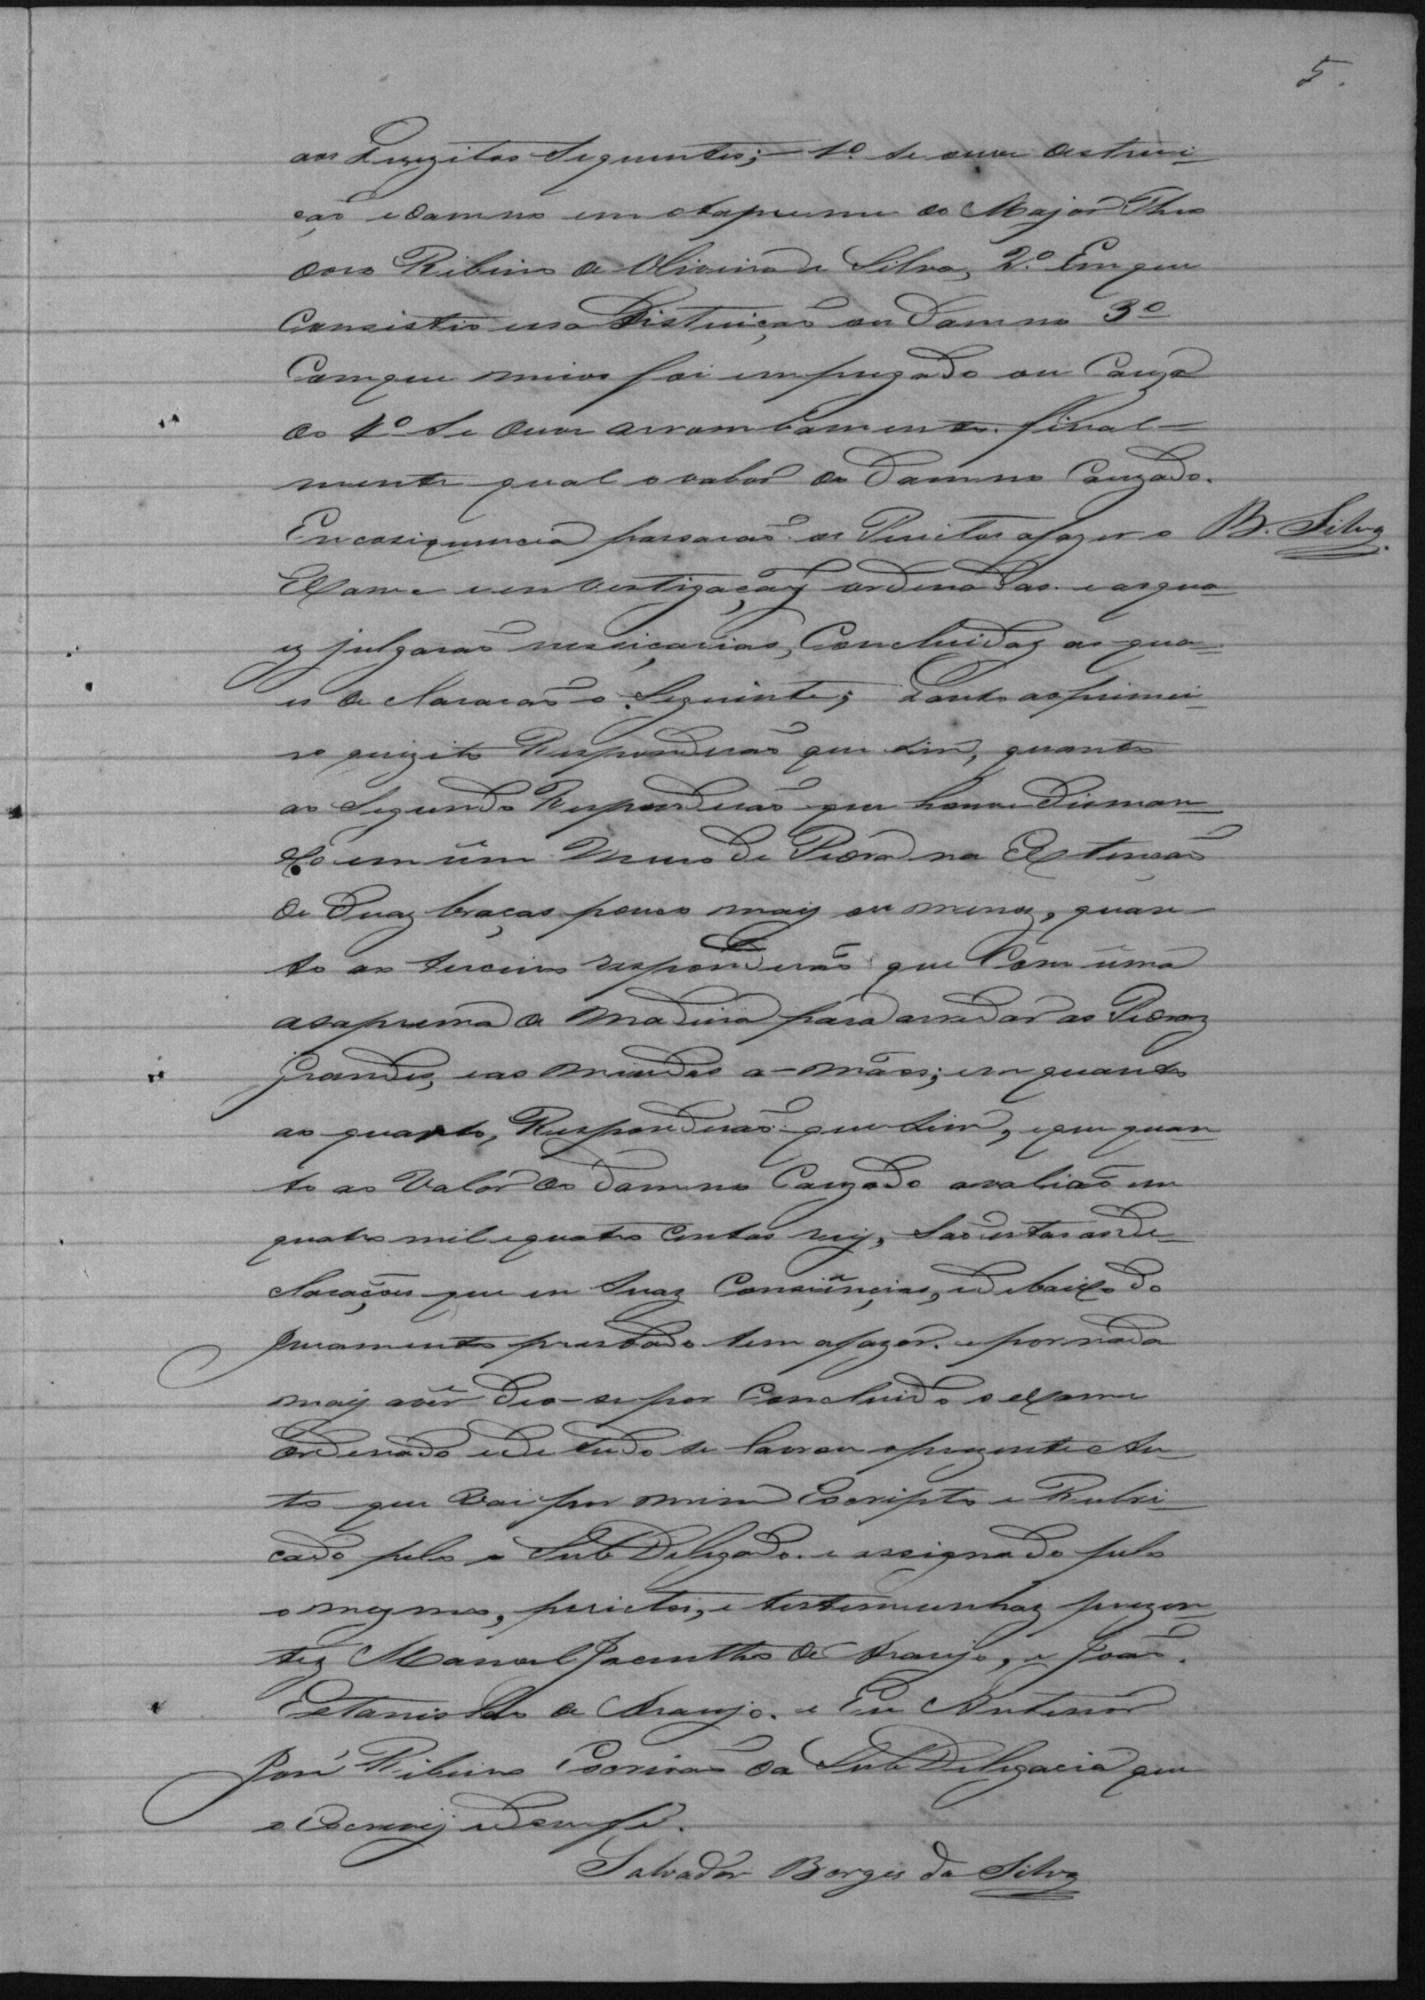 5.
aos Quezitos Seguentes; 1º se ouve destrui-
ção e damno em o tapume do Major Theo
doro Ribeiro de Oliveira e Silva, 2º Em que
Consistio essa Distruição ou damno 3º
Com que meios foi empregado ou Cauza
do 4º Se ouve arrombamento. final-
mente qual o valor do damno Cauzado.
Encosiquencia passarão os Peritos a fazer o
B. Silva
Exame e investigaçaoẽz ordenadas e as qua-
ez julgarão nesseçarias, Concluidaz as qua-
es de Clararão o Seguinte;
ao primei-
ro quizito Responderão que sim, quanto
ao Segundo Responderão que houve Disman-
xo em um Muro de Pedra na Extenção
de Duaz braças pouco maiz ou menoz, quan-
to ao terceiro responderão que Com uma
de Madeira para arredar as Pedraz
Grandes, e as miudas a-mãos; em quanto
ao quarto, Responderão que Sim, e que quan-
to ao Valor do damno Cauzado avalião em
quatro mil e quatro centos reiz, São estas as de-
claraçoes que en Suaz Consiençias, e debaixo do
Juramento prestado tem a fazer. e por nada
maiz aver deo-se por Concluido o exame
Ordenado e de tudo se lavrou o prezente Au-
to que Vai por mim Escripto e Rubri-
cado pelo o Sub Delegado. e assignado pelo
o mezmo, peritos, e testemunhaz prezen-
tez Manoel Jacintho de Araujo, e João.
Estanisláo de Araujo. e Eu Antenor
José Ribeiro Escrivão da Sub Delegacia que
o Escreviz e dou fé.
Salvador Borges da Silva